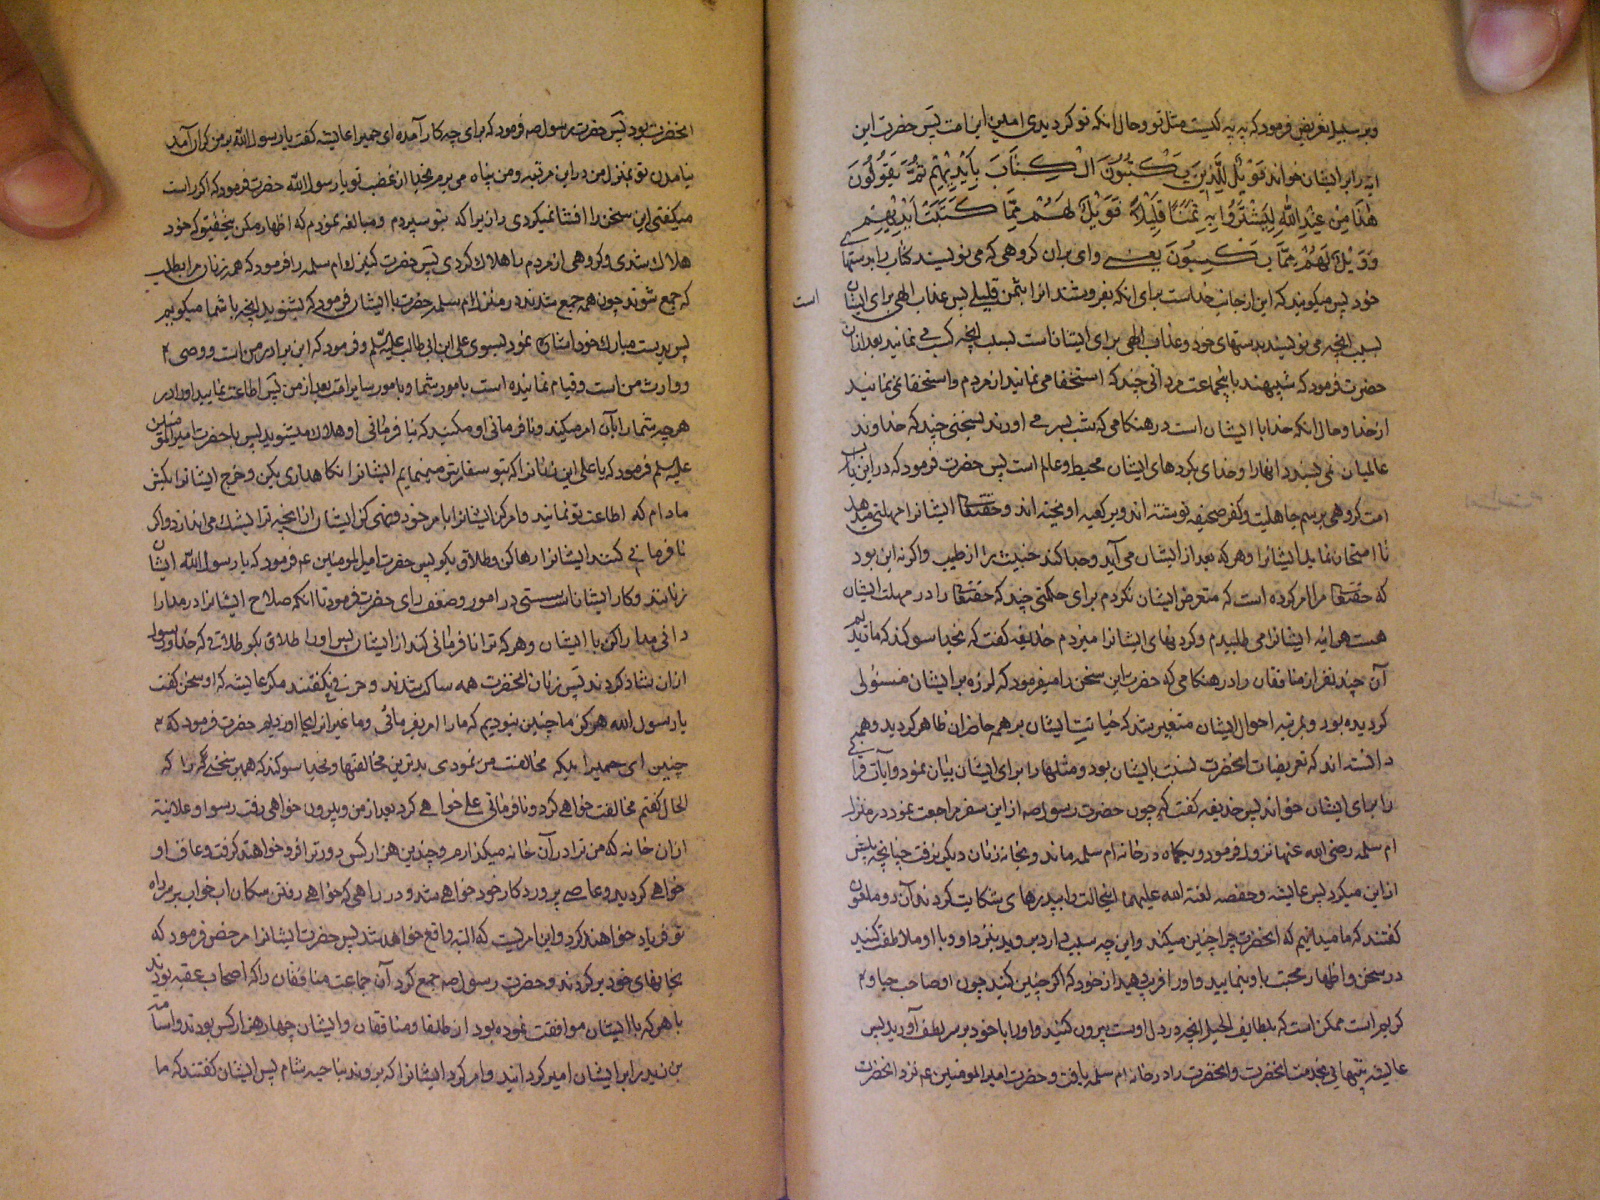 و بر سبیل تعریض فرمود که به به کیست مثل تو و حال آنکه تو کردیدی امین این امت پس حضرت این
ایه را بر ایشان خواند فَوَیْلٌ لِلَّذِینَ یَکْتُبُونَ الْکِتَابَ بِأَیْدِیهِمْ ثُمَّ یَقُولُونَ
هَذَا مِنْ عِنْدِ اللَّهِ لِیَشْتَرُوا بِهِ ثَمَنًا قَلِیلًا فَوَیْلٌ لَهُمْ مِمَّا کَتَبَتْ أَیْدِیهِمْ
وَوَیْلٌ لَهُمْ مِمَّا یَکْسِبُونَ یعنی وای بر ان کروهی که می نویسند کتاب را بدستهای
خود پس میکویند که این از جانب خداست برای انکه بفروشند انرا بثمن قلیلی پس عذاب الهی برای ایشان
است
بسبب انچه می نویسند بدستهای خود و عذاب الهی برای ایشانست بسبب انچه کسب می نمایند بعد ازان
حضرت فرمود که شبیهند باین جماعت مردانی چند که استخفا می نمایند از مردم و استخفا نمی نمایند
از خدا و حال انکه خدا با ایشان است در هنکامی که شب بسر می اورند بسخنی چند که خداوند
عالمیان نمی پسندد انها را و خدای بکردهای ایشان محیط و عالم است پس حضرت فرمود که در این باب
امت کروهی برسم جاهلیت و کفر صحیفه نوشته اند و بر کعبه اویخته اند و حقتعالی ایشانرا مهلتی میدهد
تا امتحان نماید ایشانرا و هر که بعد از ایشان می آید و جدا کند خبیث را از طیب و اکر نه این بود
که حقتعالی مرا امر کرده است که متعرض ایشان نکردم برای حکمتی چند که حقتعالی را در مهلت ایشان
هست هراینه ایشانرا می طلبیدم و کردنهای ایشانرا میزدم حذیفه کفت که بخدا سوکند که ما دیدیم
آن چند نفر از منافقان را در هنکامی که حضرت این سخن را میفرمود که لرزه بر ایشان مستولی
کردیده بود و بمرتبه احوال ایشان متغیر شد که خیانت ایشان بر همه حاضران ظاهر کردید و همه
دانستند که تعریضات انحضرت نسبت بایشان بود و مثلها را برای ایشان بیان نمود و آیات قرآنی
را بجای ایشان خواند پس حذیفه کفت که چون حضرت رسول صه از این سفر مراجعت نمود در منزل
ام سلمه رضی الله عنها نزول فرمود و یکماه در خانه ام سلمه ماند و بخانه زنان دیکر نرفت چنانچه پیش
از این میکرد پس عایشه و حفصه لعنة الله علیهما اینحالت را بپدرهای شکایت کردند آن دو ملعون
کفتند که ما میدانیم که انحضرت چرا چنین میکند و این چه سبب دارد بروید بنزد او و با او ملاطفت کنید
در سخن و اظهار محبت باو بنمایید و او را فریب دهید از خود که اکر چنین کنید چون او صاحب حیا و
کریم است ممکن است که بلطایف الحیل انچه در دل اوست بیرون کنید و او را با خود بر سر لطف آورید پس
عایشه بتنهایی بخدمت انحضرت و انحضرت را در خانه ام سلمه یافت و حضرت امیر المومنین عم نزد انحضرت
انحضرت بود پس حضرت رسول صه فرمود که برای چه کار آمده ای حمیرا عایشه کفت یا رسول الله بر من کران آمد
نیامدن تو بمنزل من در این مرتبه و من پناه می برم بخدا از غضب تو یا رسول الله حضرت فرمود که اکر راست
میکفتی این سخن را افشا نمیکردی رازیرا که بتو سپردم و مبالغه نمودم که اظهار مکن بتحقیق که خود
هلاک شدی و کروهی از مردم را هلاک کردی پس حضرت کنیزک ام سلمه را فرمود که همه زنان مرا بطلب
که جمع شوند چون همه جمع شدند در منزل ام سلمه حضرت با ایشان فرمود که بشنوید انچه با شما میکویم
پس بدست مبارک خود اشاره نمود بسوی علی ابن ابی طالب علیه السلم و فرمود که این برادر من است و وصی
و وارث من است و قیام نماینده است بامور شما و بامور سایر امت بعد از من پس اطاعت نمایید او را در
هر چه شما را بآن امر میکند و نافرمانی او مکنید که بنافرمانی او هلاک میشوید پس با حضرت امیر المومنین
علیه السلم فرمود که یا علی این زنانرا که بتو سفارش مینمایم ایشانرا نکاهداری بکن و خرج ایشانرا بکش
مادام که اطاعت تو نمایند و امر کن ایشانرا بامر خود و نهی کن ایشان را از انچه ترا بشک می اندازد و اکر
نافرمانی کنند ایشانرا رها کن و طلاق بکو پس حضرت امیر المومنین عم فرمود که یا رسول الله ایشان
زنانند و کار ایشانست سستی در امور و ضعف رای حضرت فرمود تا انکه صلاح ایشانرا در مدارا
دانی مدارا کن با ایشان و هر که ترا نافرمانی کند از ایشان پس او را طلاق بکو طلاقی که خدا و رسول
ازان شاد کردند پس زنان انحضرت همه ساکت شدند و حرفی نکفتند مکر عایشه که او سخن کفت
یا رسول الله هرکز ما چنین نبودیم که ما را امر بفرمائی و ما غیر انرا بجا اوریم حضرت فرمود که نه
چنین ای حمیرا بلکه مخالفت من نمودی بدترین مخالفتها و بخدا سوکند که همین سخنی که ترا که
الحال کفتم مخالفت خواهی کرد و نافرمانی علی خواهی کرد بعد از من و بیرون خواهی رفت رسوا و علانیه
ازان خانه که من ترا در آن خانه میکذارم و چندین هزار کس دور ترا فرو خواهند کرفت و عاق او
خواهی کردید و عاصی پروردکار خود خواهی شد و در راهی که خواهی رفتن سکان اب خواب بر سر راه
تو فریاد خواهند کرد و این امریست که البته واقع خواهد شد پس حضرت ایشانرا مرخص فرمود که
بخانهای خود بر کردند و حضرت رسول صه جمع کرد آن جماعت منافقان را که اصحاب عقبه بودند
با هر که با ایشان موافقت نموده بود از طلقا و منافقان و ایشان چهار هزار کس بودند و اسامه
بن زید را بر ایشان امیر کردانید و امر کرد ایشانرا که بروند بناحیه شام پس ایشان کفتند که ما